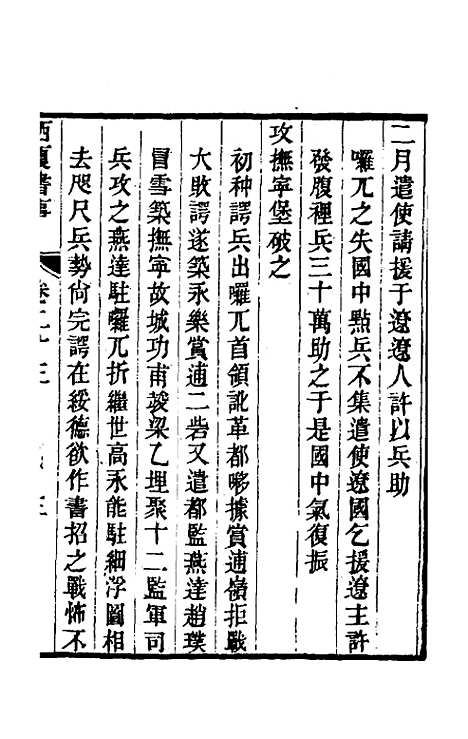 二月遣使請援于遼遼人許以兵助
囉兀之失國中點兵不集遣使遼國乞援遼主許
發腹裡兵三十萬助之于是國中氣復振
攻撫寧堡破之
初种諤兵出囉兀首領訛革都哆據賞逋嶺拒戰
大敗諤遂築永樂賞逋二砦又遣都監燕達趙璞
冒雪築撫寧故城功甫葼梁乙埋聚十二監軍司
兵攻之燕達駐囉兀折繼世高永能駐細浮圖相
去咫尺兵勢尙完諤在綏德欲作書招之戰怖不
西夏書事
卷二十三
三